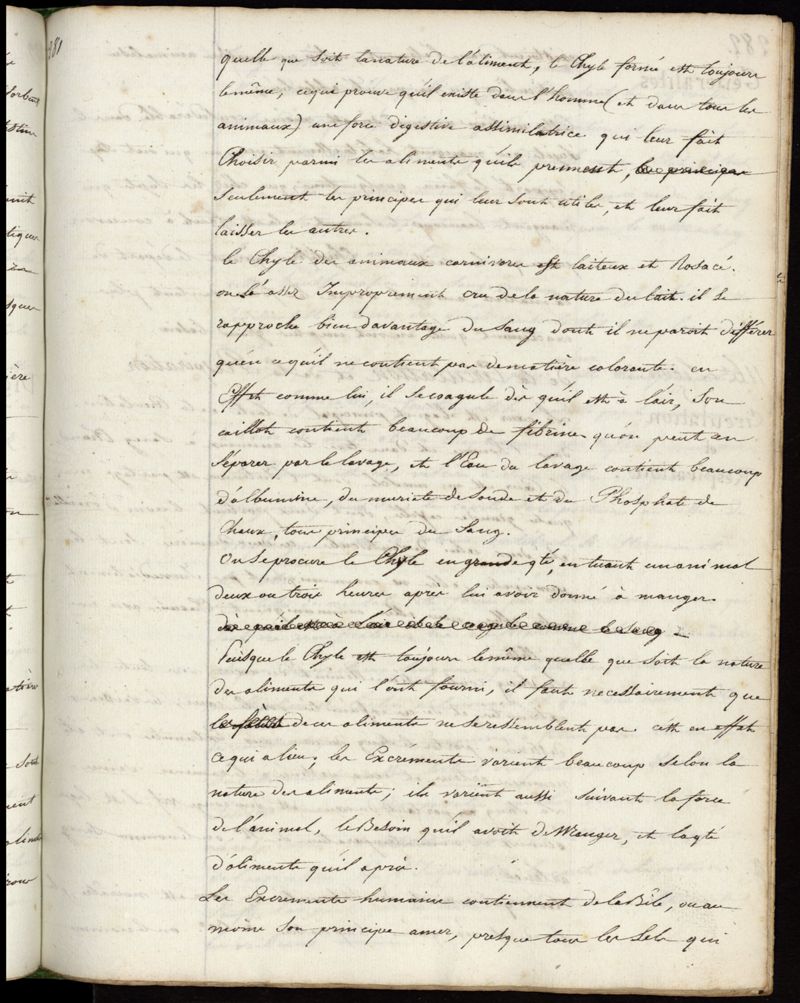 381
quelle que soit la nature de l'aliment, le Chyle formé est toujours
le même, ce qui prouve qu'il existe dans l'homme (et dans tous les
animaux) une force digestive assimilatrice qui leur fait
Choisir parmi les aliments qu'ils prennent, les principes
seulement les principes qui leur sont utiles, et leur fait
laisser les autres.
le Chyle des animaux carnivores est laiteux et Rosacé.
on l'a assez Improprement cru de la nature du lait. il se
rapproche bien davantage du Sang dont il ne paroit différer
qu'en ce qu'il ne contient pas de matière colorante. en
Effet comme lui, il se coagule dès qu'il est à l'air, son
caillot contient beaucoup de fibrine qu'on peut en
Séparer par le lavage, et l'Eau du lavage contient beaucoup
d'albumine, du muriate de Soude et du Phosphate de
Chaux, tous principes du Sang.
On se procure le Chyle en grande qté, en tuant un animal
deux ou trois heures après lui avoir donné à manger.
dès qu'il est à l'air il se coagule comme le sang
Puisque le Chyle est toujours le même quelle que soit la nature
des aliments qui l'ont fourni, il faut nécessairement que
de ces aliments ne se ressemblent pas. c'est en effet
ce qui a lieu; les Excréments varient beaucoup selon la
nature des aliments; ils varient aussi suivant la force
de l'animal, le Besoin qu'il avoit de Manger, et la qté
d'aliments qu'il a pris.
Les Excréments humains contiennent de la Bile, ou au
moins Son principe amer, presque tous les Sels qui